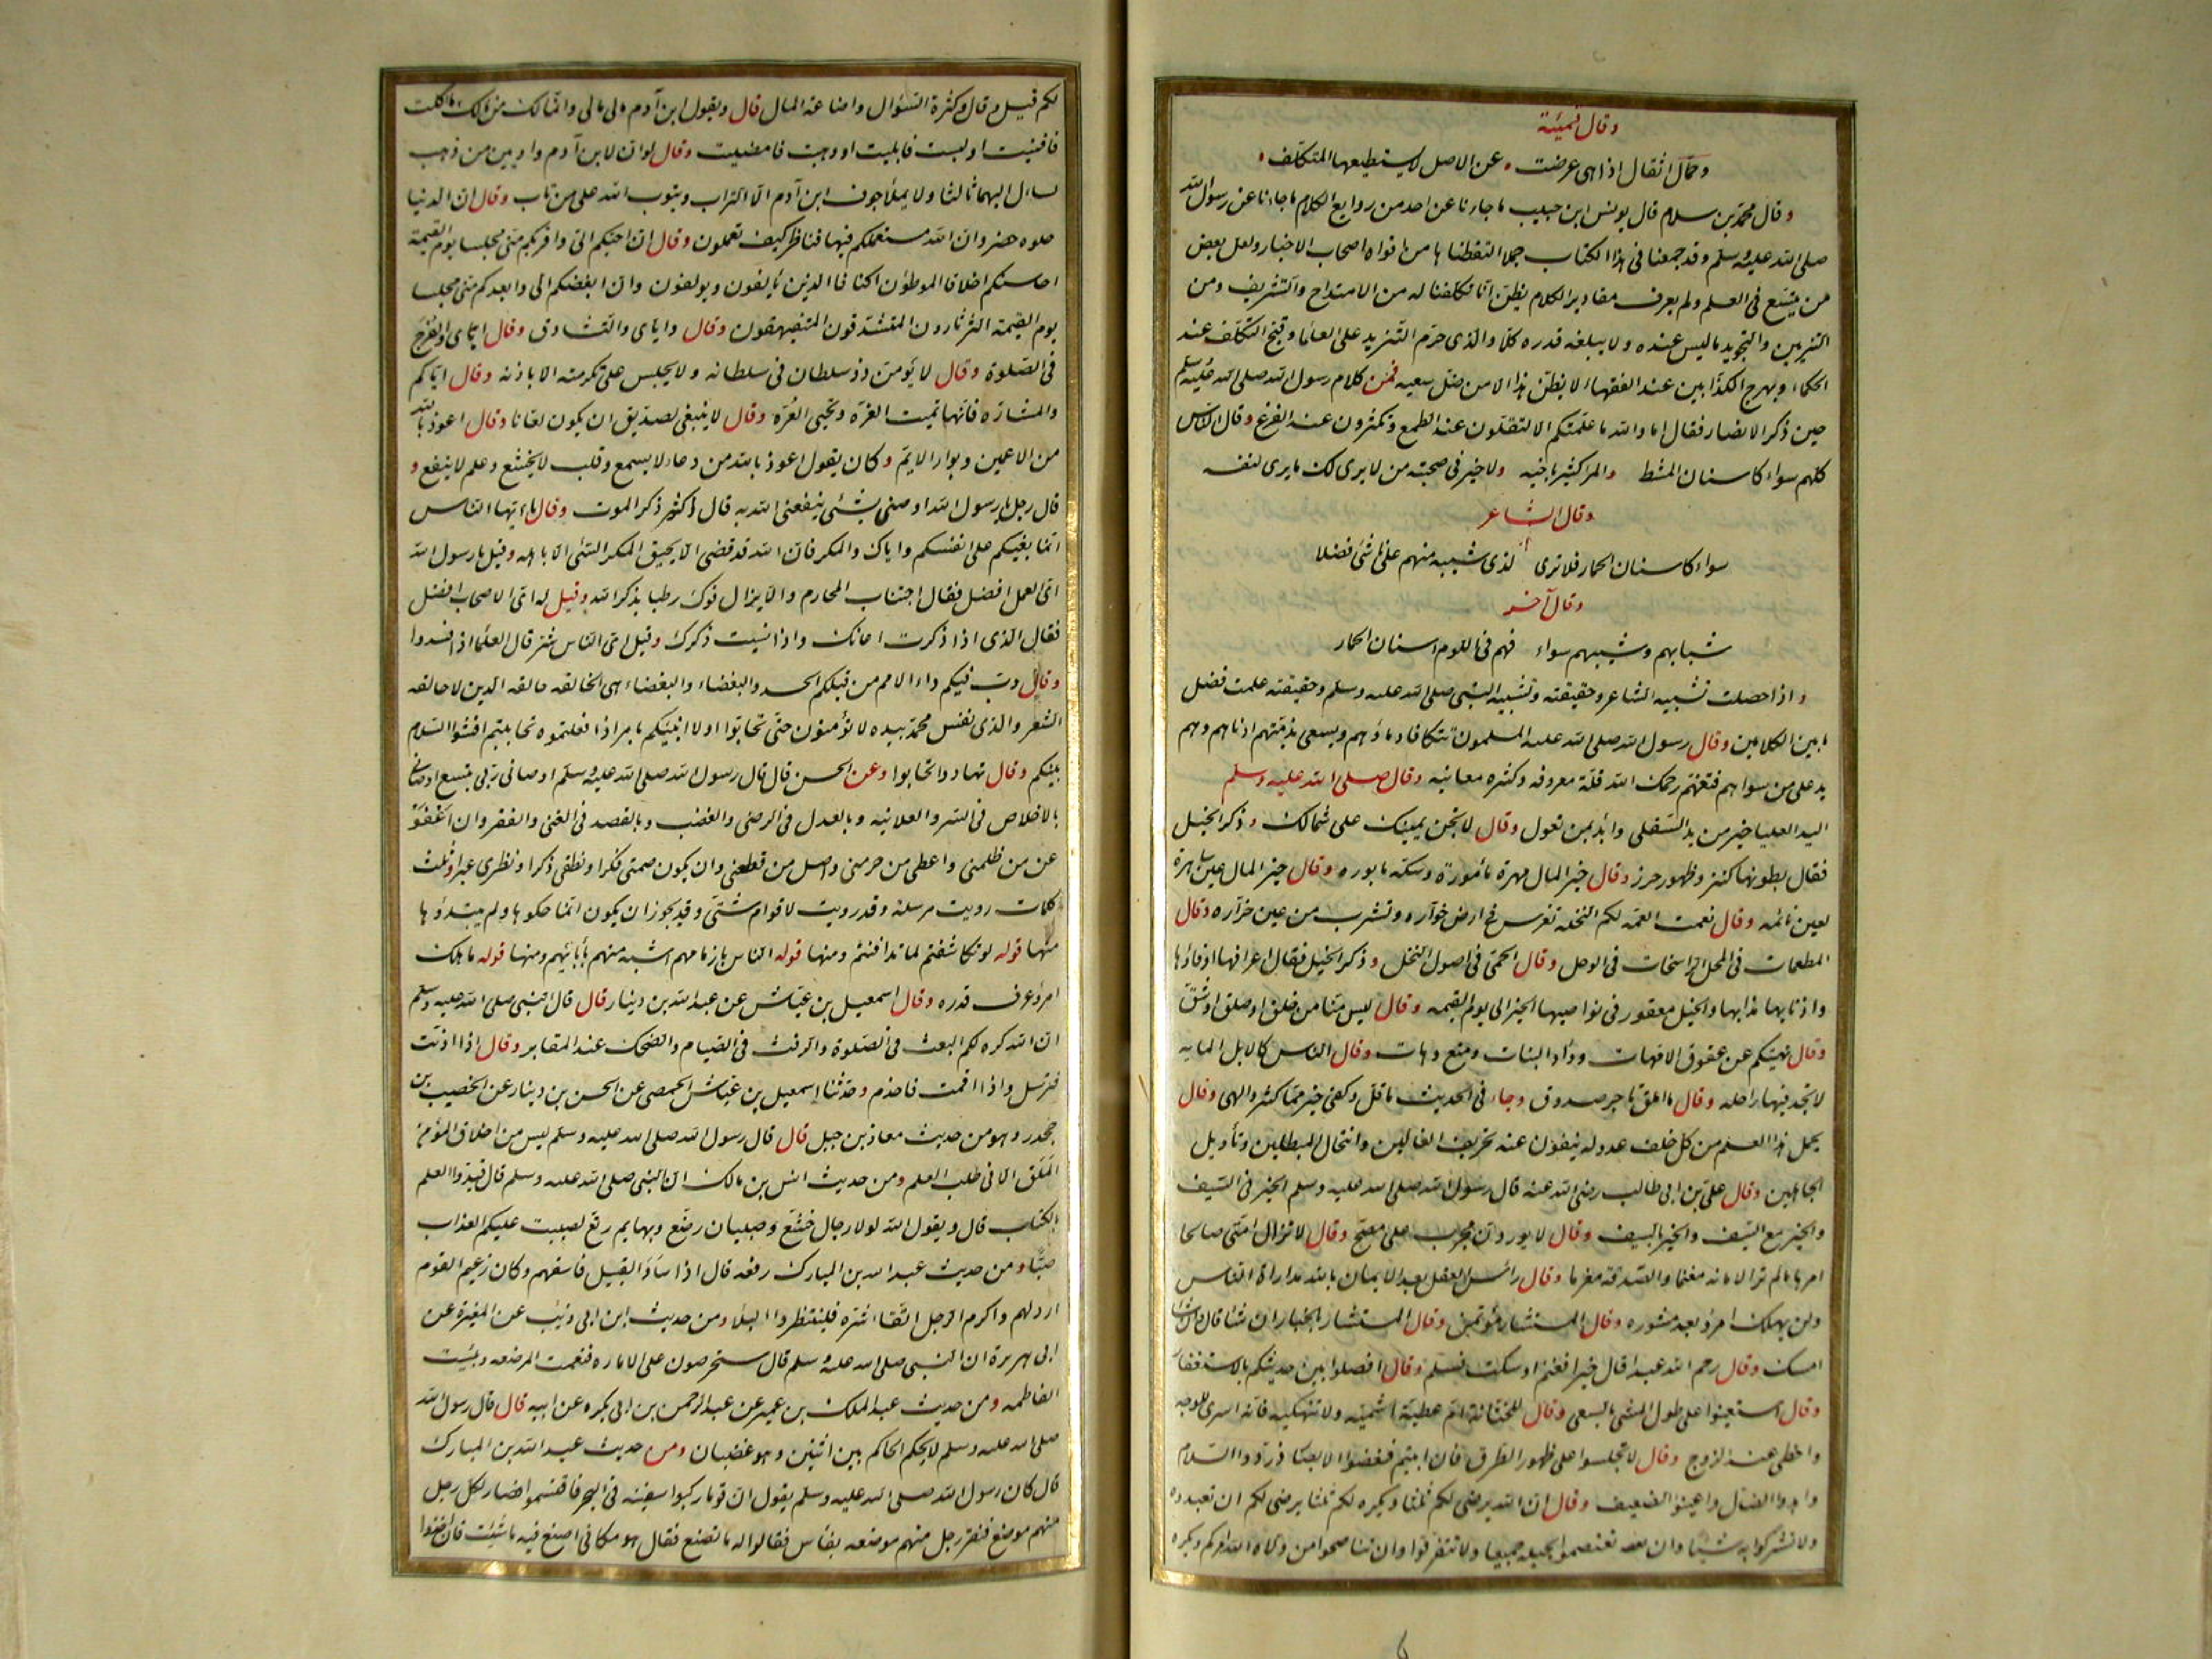 وقال قميئة
وحمّال اثقال اذا هى عرضت عن الاصل لا يستطيعها المتكلّف
وقال محمّد بن سلام قال يونس ابن حبيب ما جاءنا عن احد من روايع الكلام ما جاءنا عن رسول الله
صلى الله عليه وسلم وقد جمعنا فى هذا الكتاب جملا التقطناها من افواه اصحاب الاخبار ولعل بعض
من يتسّع فى العلم ولم يعرف مقادير الكلام يظنّ انّا تكلفنا له من الامتداح والتشريف ومن
التزيين والتجويد ما ليس عنده ولا يبلغه قدره كلّا والذى حرّم التّزيد على العلما وقبّح التكلّف عند
الحكماء وبهرج الكذّابين عند الفقهاء لا يظنّ هذا الا من ضلّ سعيه فمن كلام رسول الله صلى الله عليه وسلم
حين ذكر الانصار فقال اما والله ما علمتكم الا لتقلّون عند الطمع وتكثرون عند الفزع وقال النّاس
كلهم سواء كاسنان المشط والمرء كثير باخيه ولا خير فى صحبة من لا يرى لك ما يرى لنفسه
وقال الشاعر
سواء كاسنان الحمار فلا ترى لذى شيبة منهم على ناشئ فضلا
وقال آخر
شبابهم وشيبهم سواء فهم فى اللوم اسنان الحمار
واذا حصلت تشبيه الشاعر وحقيقته وتشبيه النبى صلى الله عليه وسلم وحقيقته علمت فضل
ما بين الكلامين وقال رسول الله صلى الله عليه المسلمون تتكافا دماؤهم ويسعى بذمّتهم ادناهم وهم
يد على من سواهم فتفهّم رحمك الله قلّة حروفه وكثرة معانيه وقال صلى الله عليه وسلم
اليد العليا خير من يد السّفلى وابدا بمن تعول وقال لا تجن يمينك على شمالك وذكر الخيل
فقال بطونها كنز وظهور حرز وقال خير المال مهرة مأمورة وسكة مابوره وقال خير المال عين ساهرة
لعين نائمه وقال نعمت العمّه لكم النخلة تغرس فى ارض خوّاره وتشرب من عين خرّاره وقال
المطعمات فى المحل الراسخات فى الوحل وقال الحمّى فى اصول النخل وذكر الخيل فقال اعرافها ادفاؤها
واذنابها مذابها والخيل معقود فى نواصيها الخير الى يوم القيمه وقال ليس منّا من حلق او صلق او شقّ
وقال نهيتكم عن عقوق الامّهات ووأد البنات ومنع وهات وقال الناس كالابل المايه
لا تجد فيها راحله وقال ما املق تاجر صدوق وجاء فى الحديث ما قلّ وكفى خير ممّا كثر والهى وقال
يحمل هذا العلم من كل خلف عدوله ينفون عنه تحريف الغالين وانتحال المبطلين وتأويل
الجاهلين وقال علىّ بن ابى طالب رضى الله عنه قال رسول الله صلى الله عليه وسلم الخير فى السّيف
والخير مع السّيف والخير بالسيف وقال لا يوردنّ مجرب على مصحّ وقال لا تزال امّتى صالحا
امرها ما لم تر الامانه مغنما والصّدقه مغرما وقال رأس العقل بعد الايمان بالله مداراة النّاس
ولن يهلك امرؤ بعد مشوره وقال المستشار مؤتمن وقال المستشار بالخيار ان شا قال وان شا
امسك وقال رحم الله عبدا قال خيرا فغنم او سكت فسلم وقال افصلوا بين حديثكم بالاستغفار
وقال استعينوا على طول المشى بالسعى وقال للختّانة امّ عطيّة اشميه ولا تنهكيه فانّه اسرى للوجه
واحظى عند الزوج وقال لا تجلسوا على ظهور الطرق فان ابيتم فغضوا الابصار وردّوا السّلام
واهدوا الضال واعينوا الضعيف وقال ان الله يرضى لكم ثلثا ويكره لكم ثلثا يرضى لكم ان تعبدوه
ولا تشركوا به شيئا وان تعتصموا بحبله جميعا ولا تتفرقوا وان تناصحوا من ولاه الله امركم ويكره
لكم قيل وقال وكثرة السّؤال واضاعة المال قال ويقول ابن آدم مالى مالى وانّما لك من مالك ما اكلت
فافنيت او لبست فابليت او وهبت فامضيت وقال لو انّ لابن آدم واديين من ذهب
لسال اليهما ثالثا ولا يملأ جوف ابن آدم الّا التراب ويتوب الله على من تاب وقال ان الدنيا
حلوه خضره وان الله مستعملكم فيها فناظر كيف تعملون وقال ان احبّكم الىّ واقربكم منّى مجلسا يوم القيمة
احاسنكم اخلاقا الموطؤن اكنافا الذين يألفون ويولفون وان ابغضكم الىّ وابعدكم منّى مجلسا
يوم القيمة الثرثارون المتشدّقون المتفيهقون وقال واياى والتّشادق وقال ايّاى والفرج
فى الصّلوة وقال لا يؤمّن ذو سلطان فى سلطانه ولا يجلس على تكرمته الا باذنه وقال ايّاكم
والمشارّه فانّها تميت الغرّه وتحيى العرّه وقال لا ينبغى لصدّيق ان يكون لعّانا وقال اعوذ بالله
من الاعمين وبوار الايّم وكان يقول اعوذ بالله من دعاء لا يسمع وقلب لا يخشع وعلم لا ينفع و
قال رجل يا رسول الله اوصنى بشئى ينفعنى الله به قال اكثر ذكر الموت وقال يا ايّها النّاس
انّما بغيكم على انفسكم واياك والمكر فان الله قد قضى الّا يحيق المكر السّئى الّا باهله وقيل يا رسول الله
اىّ العمل افضل فقال اجتناب المحارم والّا يزال فوك رطبا بذكر الله وقيل له اىّ الاصحاب افضل
فقال الّذى اذا ذكرت اعانك واذا نسيت ذكرك وقيل اىّ النّاس شرّ قال العلما اذا فسدوا
وقال دبّ فيكم داء الامم من قبلكم الحسد والبغضاء والبغضاء هى الحالقه حالقه الدين لا حالقه
الشّعر والذى نفس محمّد بيده لا تؤمنون حتّى تحابّوا اولا انبئكم بامر اذا فعلتموه تحاببتم افشوا السّلام
بينكم وقال تهادوا تحابوا وعن الحسن قال قال رسول الله صلى الله عليه وسلم اوصانى ربّى بتسع اوصانى
بالاخلاص فى السّر والعلانيه وبالعدل فى الرضى والغضب وبالقصد فى الغنى والفقر وان اعفو
عن من ظلمنى واعطى من حرمنى واصل من قطعنى وان يكون صمتى فكرا ونطقى ذكرا ونظرى عبرا وثلث
كلمات رويت مرسلة وقد رويت لاقوام شتّى وقد يجوز ان يكون انّما حكوها ولم يبتدؤها
منها قوله لو تكاشفتم لما تدافنتم ومنها قوله الناس بازمانهم اشبه منهم بآبائهم ومنها قوله ما هلك
امرؤ عرف قدره وقال اسمعيل بن عيّاش عن عبد الله بن دينار قال قال النبى صلى الله عليه وسلم
ان الله كره لكم العبث فى الصّلوة والرفث فى الصّيام والضحك عند المقابر وقال اذا اذنت
فترسل واذا اقمت فاحذم وحدّثنا اسمعيل بن عيّاش الحمصى عن الحسن بن دينار عن الخصيب بن
جحدر وهو من حديث معاذ بن جبل قال قال رسول الله صلى الله عليه وسلم ليس من اخلاق المؤمن
الملق الا فى طلب العلم ومن حديث انس بن مالك ان النبى صلى الله عليه وسلم قال قيّدوا العلم
بالكتاب قال ويقول الله لولا رجال خشّع وصبيان رضّع وبهايم رتّع لصببت عليكم العذاب
صبّا ومن حديث عبد الله بن المبارك رفعه قال اذا ساد القبيل فاسقهم وكان زعيم القوم
ارذلهم واكرم الرجل اتّقاء شرّه فلينتظروا البلاء ومن حديث ابن ابى ذئيب عن المغيرة عن
ابى هريرة ان النبى صلى الله عليه وسلم قال ستحرصون على الاماره فنعمت المرضعه وبئست
الفاطمه ومن حديث عبد الملك بن عمير عن عبد الرّحمن بن ابى بكره عن ابيه قال قال رسول الله
صلى الله عليه وسلم لا يحكم الحاكم بين اثنين وهو غضبان ومن حديث عبد الله بن المبارك
قال كان رسول الله صلى الله عليه وسلم يقول ان قوما ركبوا سفينه فى البحر فاقتسموا فصار لكل رجل
منهم موضع فنقر رجل منهم موضعه بفأس فقالوا له ما تصنع فقال هو مكانى اصنع فيه ما شئت فان اخذوا